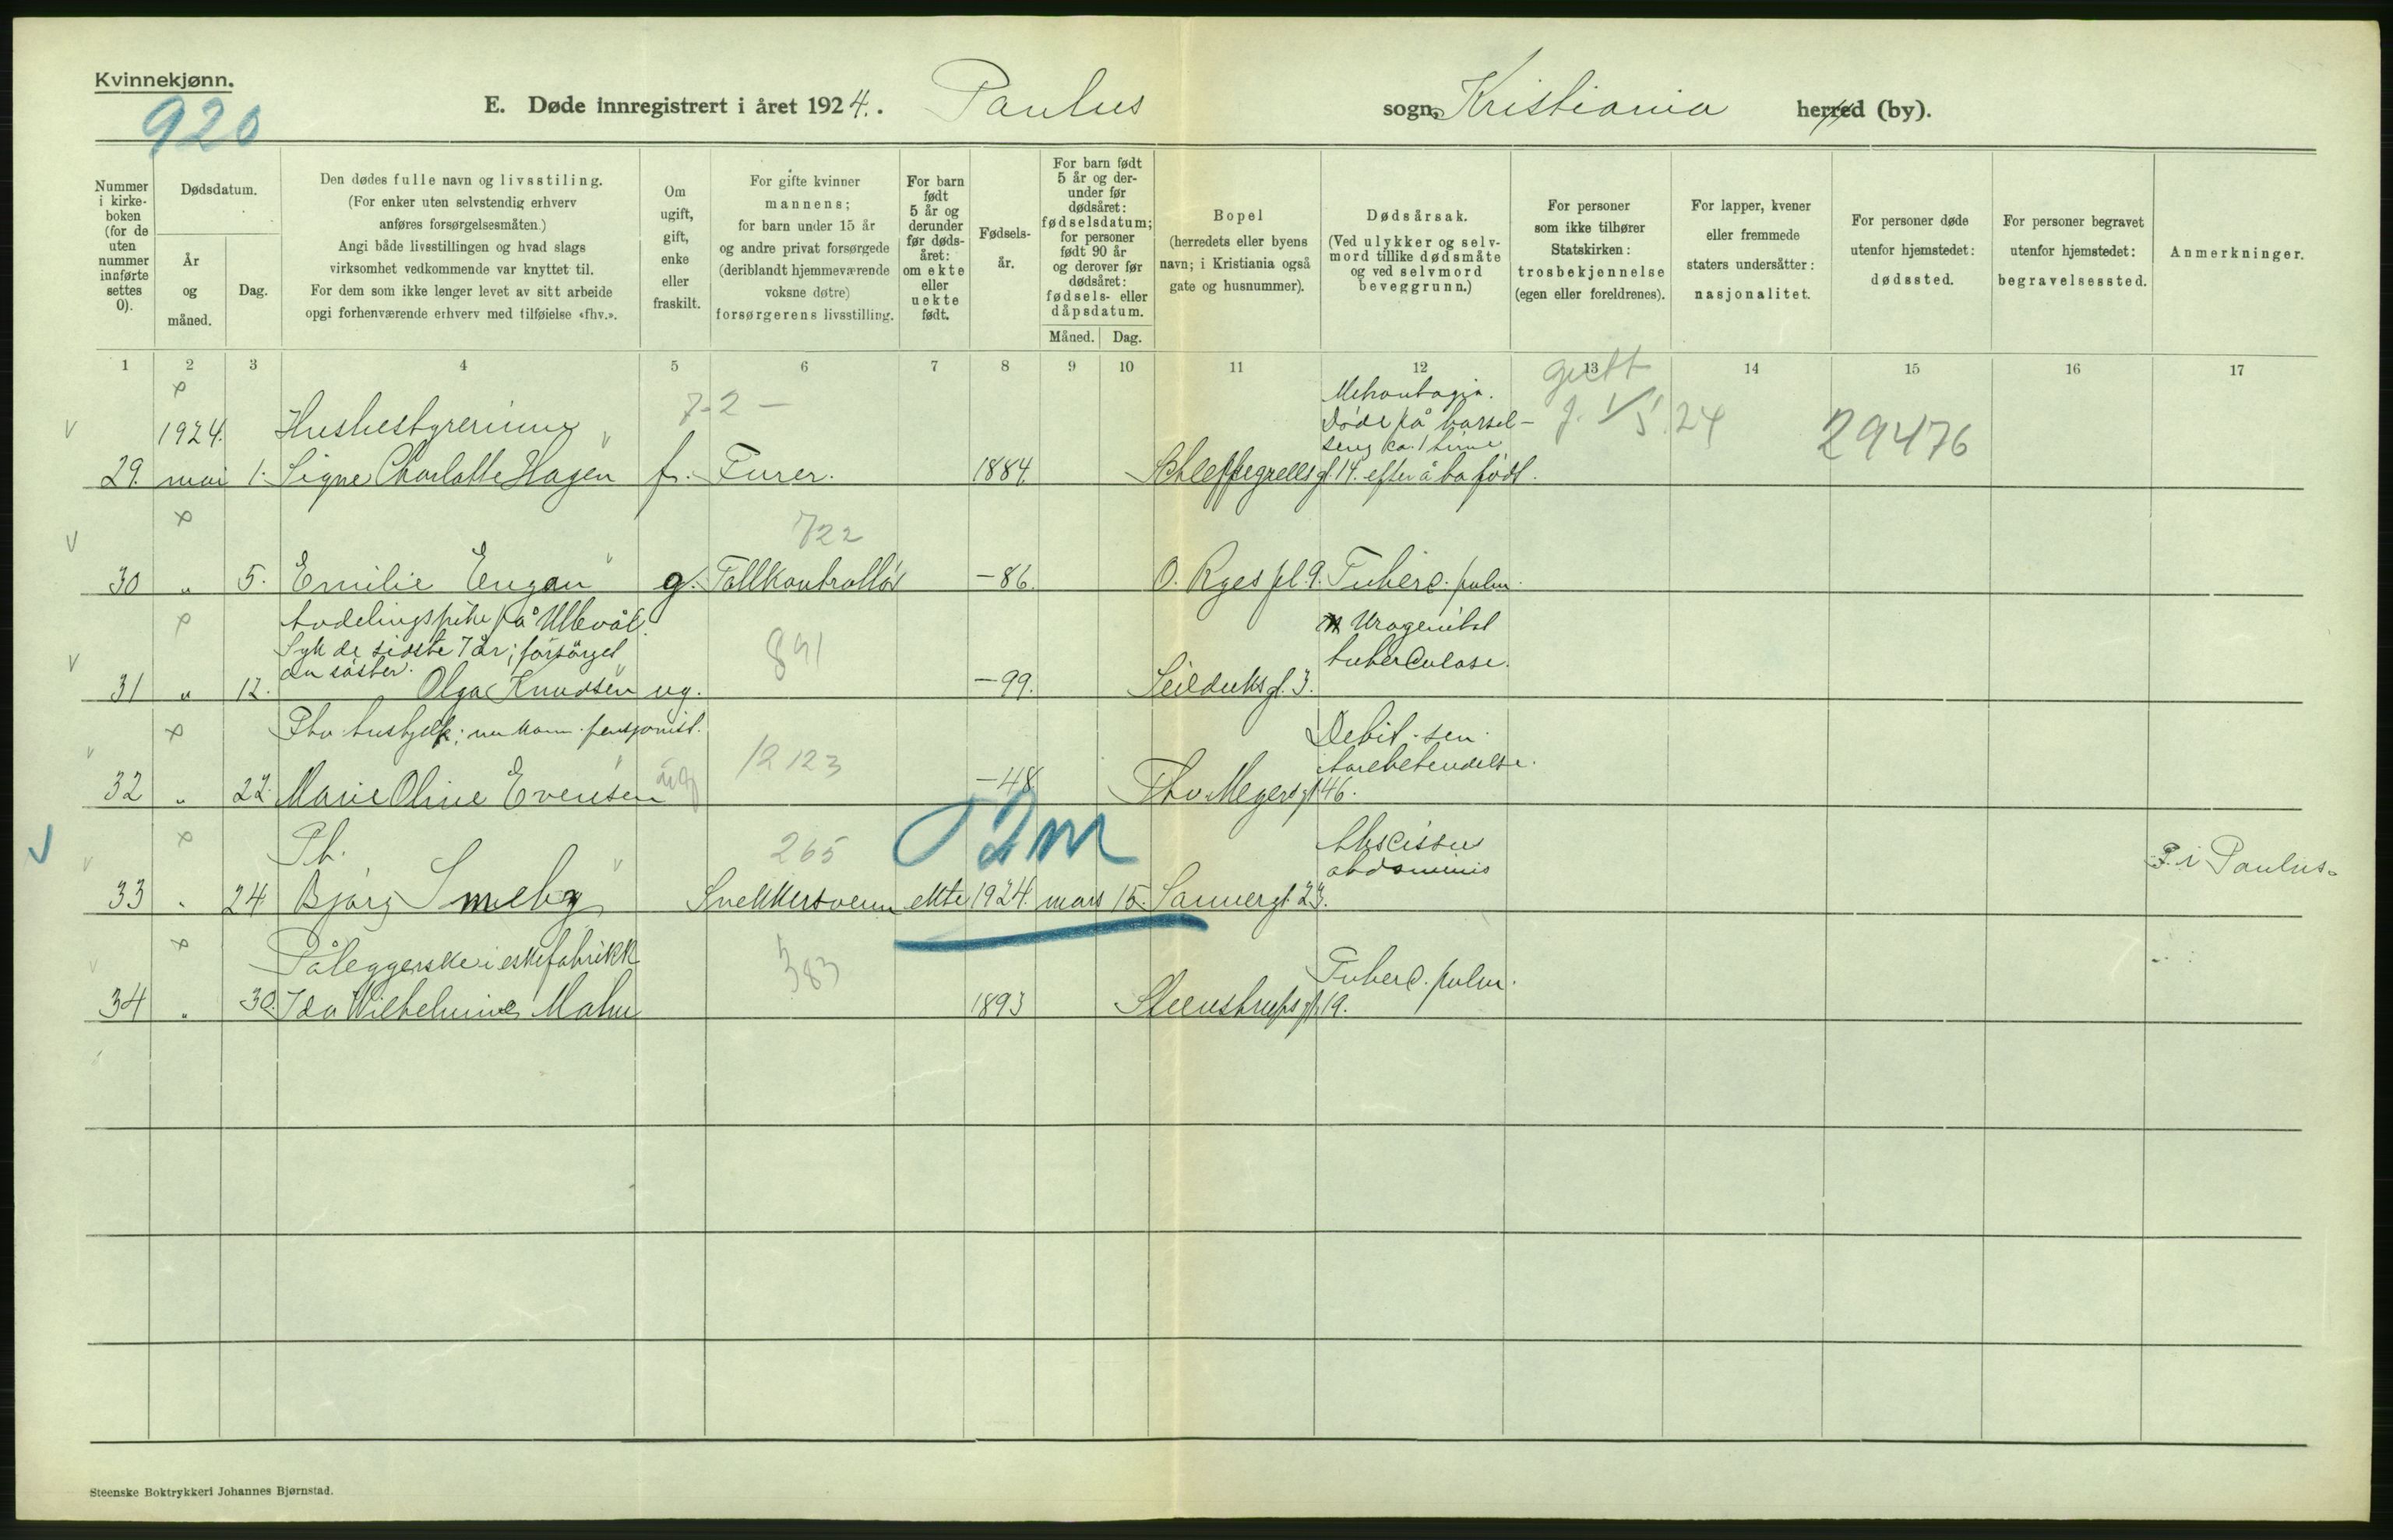 Kvinnekjønn.
920
E. Døde innregistrert i året 1924. Paulus sogn, Kristiania herred (by).
Nummer i kirkeboken (for de uten nummer innførte settes 0).
Dødsdatum.
År og måned.
Dag.
Den dødes fulle navn og livsstiling.
(For enker uten selvstendig erhverv
anføres forsørgelsesmåten.)
Angi både livsstillingen og hvad slags
virksomhet vedkommende var knyttet til.
For dem som ikke lenger levet av sitt arbeide
opgi forhenværende erhverv med tilføielse «fhv.».
Om ugift, gift, enke eller fraskilt.
For gifte kvinner
mannens;
for barn under 15 år
og andre privat forsørgede
(deriblandt hjemmeværende
voksne døtre)
forsørgerens livsstilling.
For barn født 5 år og derunder før dødsåret: om ekte eller uekte født.
Fødselsår.
For barn født 5 år og derunder før dødsåret: fødselsdatum; for personer født 90 år og derover før dødsåret: fødsels- eller dåpsdatum.
Måned. Dag.
Bopel
(herredets eller byens
navn; i Kristiania også
gate og husnummer).
Dødsårsak.
(Ved ulykker og selvmord tillike dødsmåte og ved selvmord beveggrunn.)
For personer
som ikke tilhører
Statskirken:
trosbekjennelse
(egen eller foreldrenes).
For lapper, kvener
eller fremmede
staters undersåtter:
nasjonalitet.
For personer døde
utenfor hjemstedet:
dødssted.
For personer begravet
utenfor hjemstedet:
begravelsessted.
Anmerkninger.
1 2 3 4 5 6 7 8 9 10 11 12 13 14 15 16 17
1924. Husbestyrerinne 7-2- Metrorhagia. Døde på barsel-seng ca. 1 time gutt f. 1/5 24 29476
29. mai 1. Signe Charlotte Hagen f. Furer. 1884 Schleppegrellsgt. 14. efter å ha født.
722
30 " 5. Emilie Engan g. Tollkontrollør -86. O. Ryes pl. 9. Tuberc. pulm.
Avdelingspike på Ullevål.
Syk de sidste 7 år; forsørget
av søster. 891 Urogenital tuberculose.
31 " 12. Olga Knudsen ug. -99. Seilduksgt. 3.
Fhv. hushjelp; nu kom. pensjonist. 12123 Debil. sen. Årebetendelse.
32 " 22. Marie Oline Evensen ug -48 Thv. Meyersgt. 46.
Pb. 265 2 m Abscissus abdominis P. i Paulus.
33 " 24 Bjørg Smeby Snekkersvenn ekte 1924. mars 15. Sannergt. 23.
Påleggerske i eskefabrikk 383 Tuberc. pulm.
34 " 30. Ida Wilhelmine Malm 1893 Steenstrupsgt. 19.
Steenske Boktrykkeri Johannes Bjørnstad.